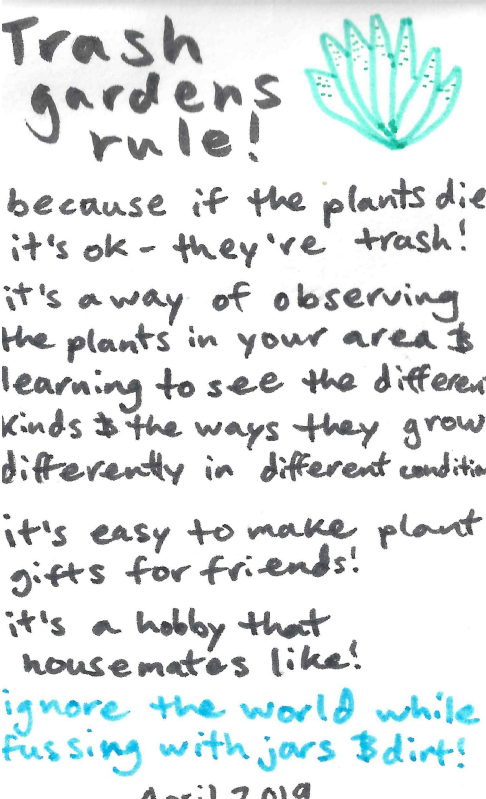 Trash
gardens
rule!
because if the plants die
it's ok - they're trash!
it's a way of observing
the plants in your area &
learning to see the different
kinds & the ways they grow
differently in different condition
it's easy to make plant
gifts for friends!
it's a hobby that
housemates like!
ignore the world while
fussing with jars & dirt!
April 2019